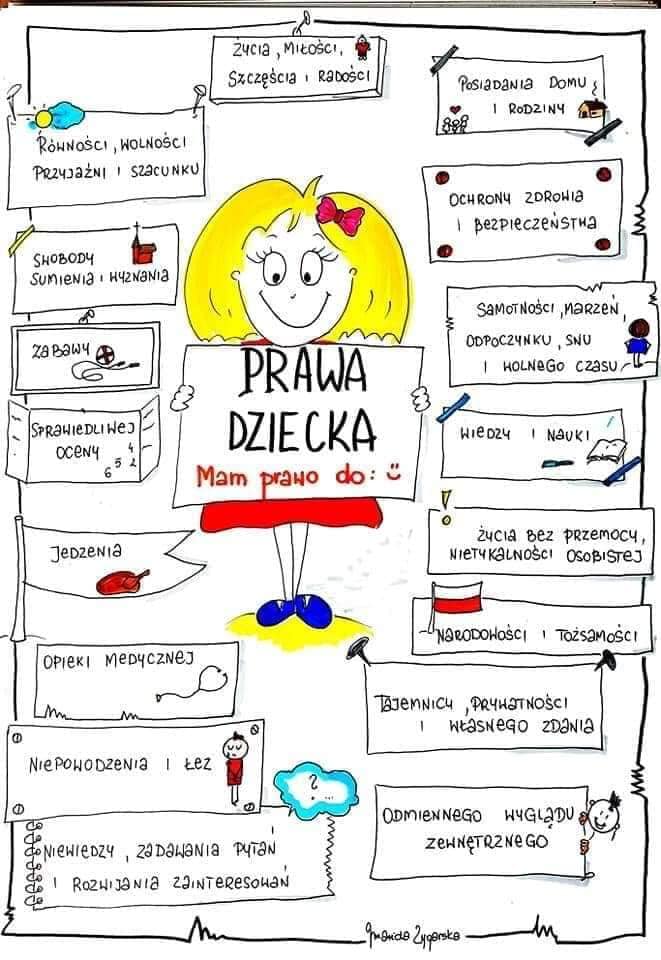 ŻYCIA, MIŁOŚCI,
SZCZĘŚCIA I RADOŚCI
POSIADANIA DOMU
I RODZINY
RÓWNOŚCI, WOLNOŚCI
PRZYJAŹNI I SZACUNKU
OCHRONY ZDROWIA
I BEZPIECZEŃSTWA
SWOBODY
SUMIENIA I WYZNANIA
SAMOTNOŚCI, MARZEŃ,
ODPOCZYNKU, SNU
I WOLNEGO CZASU
ZABAWY
PRAWA
DZIECKA
Mam prawo do:
SPRAWIEDLIWEJ
OCENY
4
6 5 2
WIEDZY I NAUKI
!
ŻYCIA BEZ PRZEMOCY,
NIETYKALNOŚCI OSOBISTEJ
JEDZENIA
NARODOWOŚCI I TOŻSAMOŚCI
OPIEKI MEDYCZNEJ
TAJEMNICY, PRYWATNOŚCI
I WŁASNEGO ZDANIA
NIEPOWODZENIA I ŁEZ
?
ODMIENNEGO WYGLĄDU
ZEWNĘTRZNEGO
NIEWIEDZY, ZADAWANIA PYTAŃ
I ROZWIJANIA ZAINTERESOWAŃ